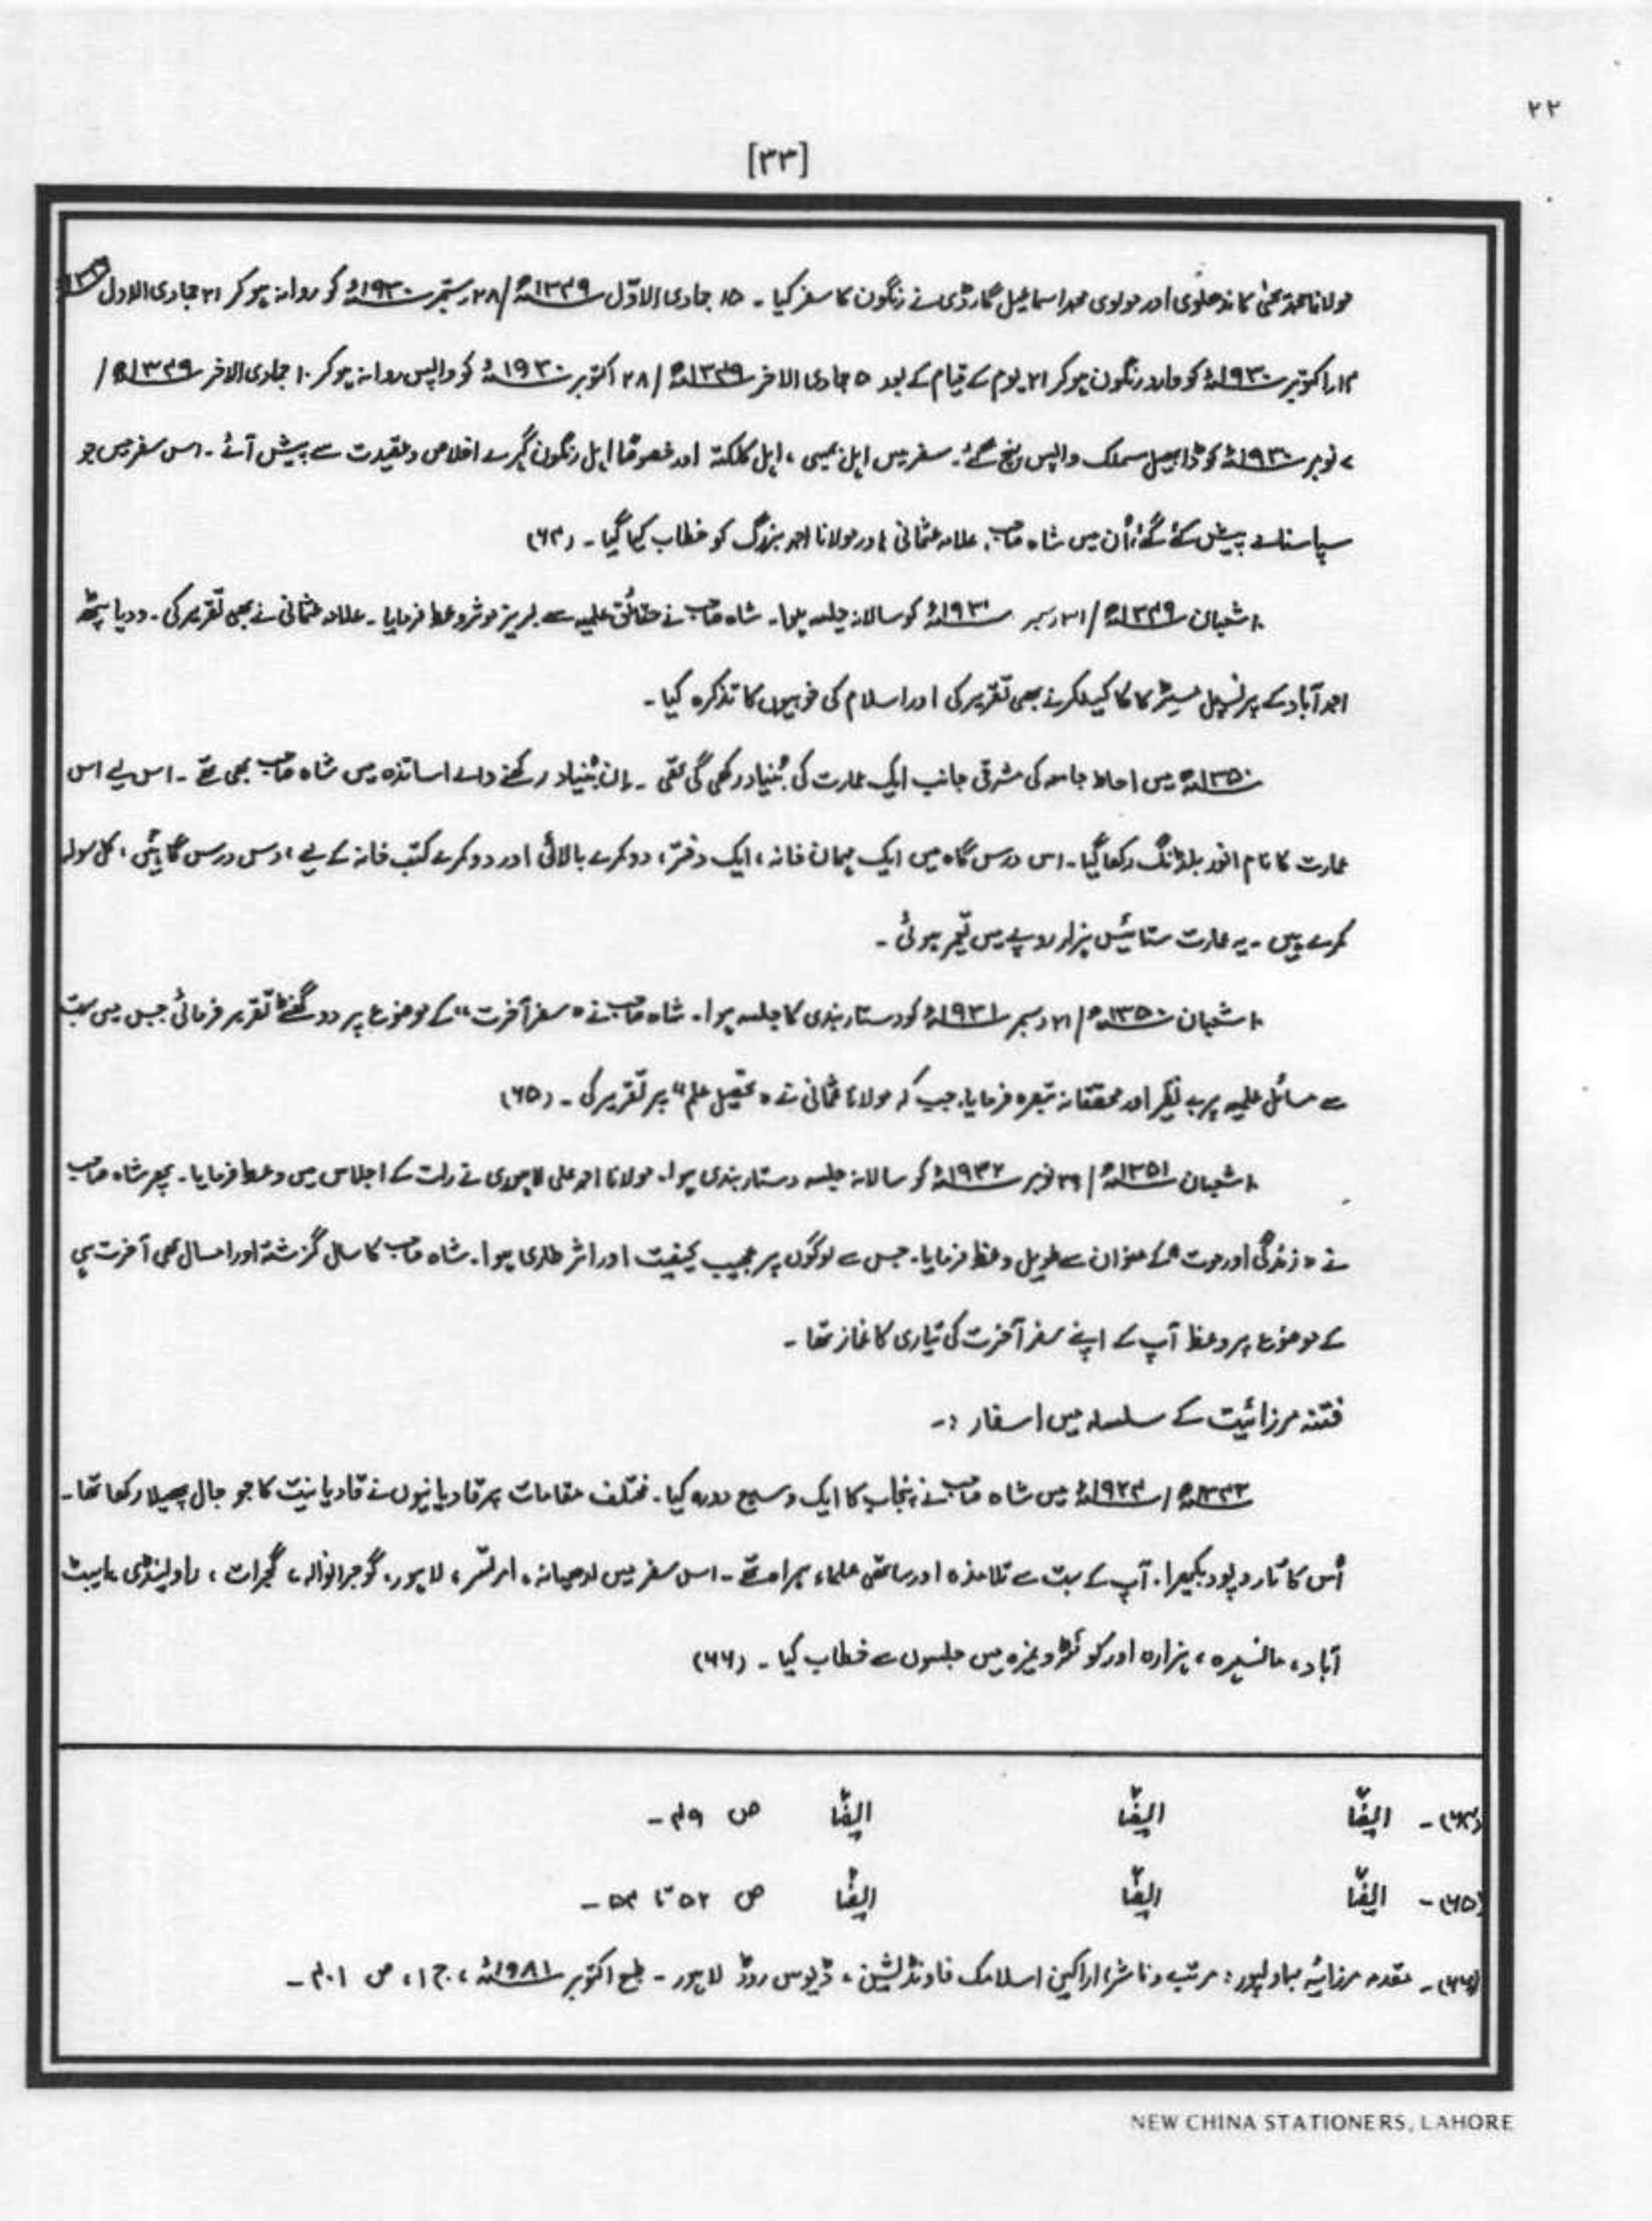 ۲۲
[۳۳]
مولانا محمد یحیٰی کاندھلوی اور مولوی محمد اسماعیل گارڈی نے رنگون کا سفر کیا ۔ ۱۵ جمادی الاوّل ۱۳۴۹ھ/۲۸ ستمبر ۱۹۳۰ء کو روانہ ہو کر ۲۱ جمادی الاول
اکتوبر ۱۹۳۰ء کو وارد رنگون ہو کر ۲۱ یوم کے قیام کے بعد ۵ جمادی الاخر ۱۳۴۹ھ / ۲۸ اکتوبر ۱۹۳۰ء کو واپس روانہ ہو کر ۱۰ جمادی الاخر ۱۳۴۹ھ /
۷ نومبر ۱۹۳۰ء کو ڈابھیل سملک واپس پہنچ گئے۔ سفر میں اہل بمبئی ، اہل کلکتہ اور خصوصًا اہل رنگون گہرے اخلاص و عقیدت سے پیش آئے ۔ اس سفر میں جو
سپاسنامے پیش کئے گئے اُن میں شاہ صاحب، علامہ عثمانی اور مولانا احمد بزرگ کو خطاب کیا گیا ۔ (۶۴)
۱۰ شعبان ۱۳۴۹ھ / ۳۱ دسمبر ۱۹۳۰ء کو سالانہ جلسہ ہوا۔ شاہ صاحب نے حقائق علمیہ سے لبریز موثر وعظ فرمایا ۔ علامہ عثمانی نے بھی تقریر کی ۔ ودیا پیٹھ
احمد آباد کے پرنسپل مسیٹر کاکا کیلکر نے بھی تقریر کی اور اسلام کی خوبیوں کا تذکرہ کیا ۔
۱۳۵۰ھ میں احاطہ جامعہ کی مشرقی جانب ایک عمارت کی بُنیاد رکھی گی تھی ۔ اِن بُنیاد رکھنے والے اساتذہ میں شاہ صاحب بھی تھے ۔ اس لیے اس
عمارت کا نام انور بلڈنگ رکھا گیا ۔ اس درس گاہ میں ایک مہمان خانہ ، ایک دفتر ، دو کمرے بالائی اور دو کمرے کتب خانہ کے لیے ، دس درس گاہیں ، کل سولہ
کمرے ہیں ۔ یہ عمارت ستائیس ہزار روپے میں تعمیر ہوئی ۔
۱۰ شعبان ۱۳۵۰ھ / ۲۱ دسمبر ۱۹۳۱ء کو دستار بندی کا جلسہ ہوا۔ شاہ صاحب نے "سفر آخرت" کے موضوع پر دو گھنٹے تقریر فرمائی جس میں بہت
سے مسائل علمیہ پر بے نظیر اور محققانہ تبصرہ فرمایا۔ جب کہ مولانا عثمانی نے "تحصیل علم" پر تقریر کی ۔ (۶۵)
۱۰ شعبان ۱۳۵۱ھ / ۲۹ نومبر ۱۹۳۲ء کو سالانہ جلسہ دستار بندی ہوا۔ مولانا احمد علی لاہوری نے رات کے اجلاس میں وعظ فرمایا ۔ پھر شاہ صاحب
نے "زندگی اور موت" کے عنوان سے طویل وعظ فرمایا۔ جس سے لوگوں پر عجیب کیفیت اور اثر طاری ہوا۔ شاہ صاحب کا سال گزشتہ اور امسال بھی آخرت ہی
کے موضوع پر وعظ آپ کے اپنے سفر آخرت کی تیاری کا غماز تھا ۔
فتنہ مرزائیت کے سلسلہ میں اسفار :۔
۱۳۴۳ھ / ۱۹۲۴ء میں شاہ صاحب نے پنجاب کا ایک وسیع دورہ کیا ۔ مختلف مقامات پر قادیانیوں نے قادیانیت کا جو جال پھیلا رکھا تھا ۔
اُس کا تار و پود بکھیرا ۔ آپ کے بہت سے تلامذہ اور ساتھی علماء ہمراہ تھے ۔ اس سفر میں لدھیانہ ، امرتسر ، لاہور، گوجرانوالہ ، گجرات ، راولپنڈی ، ایبٹ
آباد ، مانسہرہ ، ہزارہ اور کوئٹہ وغیرہ میں جلسوں سے خطاب کیا ۔ (۶۶)
(۶۴)۔ ایضًا ایضًا ایضًا ص ۴۹ ۔
(۶۵)۔ ایضًا ایضًا ایضًا ص ۵۲ تا ۵۴ ۔
(۶۶)۔ مقدمہ مرزائیہ بہاولپور : مرتب و ناشر اراکین اسلامک فاونڈیشن ، ڈیوس روڈ لاہور ۔ طبع اکتوبر ۱۹۸۸ء ، ج ۱ ، ص ۴۰۱ ۔
NEW CHINA STATIONERS, LAHORE